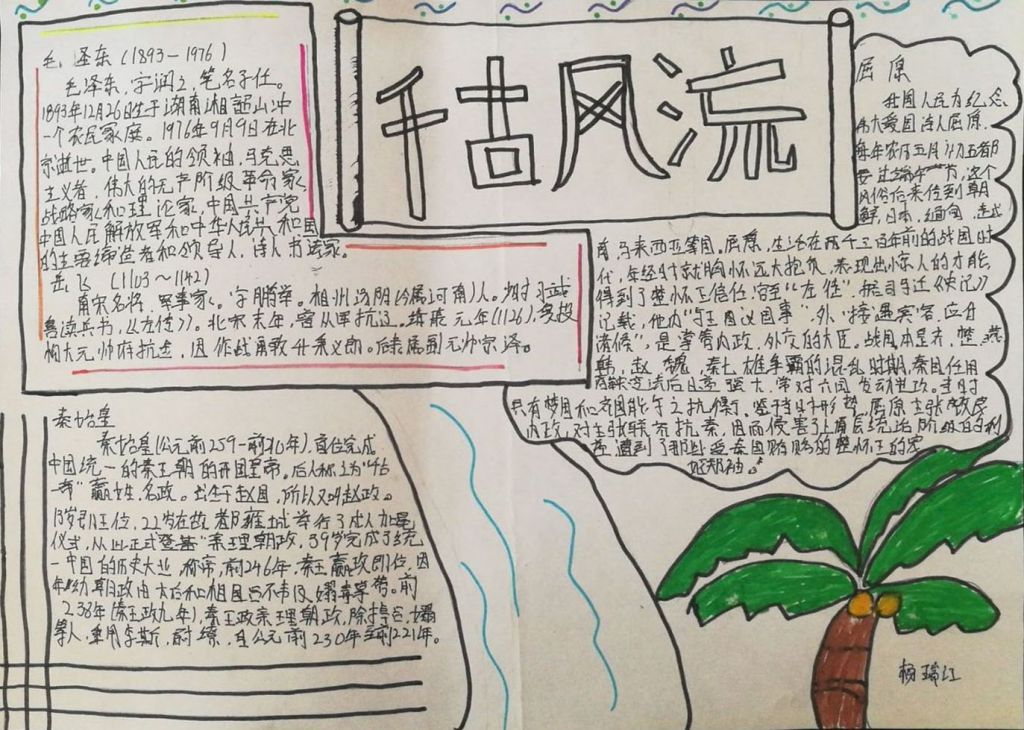 千古风流
毛泽东(1893—1976)
毛泽东,字润之,笔名子任。
1893年12月26日生于湖南湘韶山冲
一个农民家庭。1976年9月9日在北
京逝世。中国人民的领袖,马克思
主义者,伟大的无产阶级革命家,
战略家和理论家,中国共产党
中国人民解放军和中华人民共和国
的主要缔造者和领导人,诗人书法家。
岳飞(1103~1142)
南宋名将,军事家。字鹏举。相州汤阴(今属河南)人。少时习武
喜读兵书,《左传》。北宋末年,
元年(1126),
帅府抗金,因作战勇敢升秉义郎。后隶属副元帅宗泽。
屈原
我国人民为纪念
伟大爱国诗人屈原,
每年农历五月初五都
要过端午节,这个
风俗后来传到朝
鲜,日本,缅甸,越
南,马来西亚等国,屈原,生活在两千三百年前的战国时
代,年轻时就胸怀远大抱负,表现出惊人的才能,
得到了楚怀王信任,官至“左徒”,据司马迁《史记》
记载,他内“与王图议国事”,外“接遇宾客,应对
诸侯”,是掌管内政,外交的大臣。战国本是齐,楚,燕
韩,赵,魏,秦七雄争霸的混乱时期,秦国任用
商鞅变法后日益强大,常对六国发动进攻。当时
只有楚国和齐国能与之抗衡,鉴于当时形势,屈原主张改良
内政,对主张联齐抗秦,因而侵害了上层统治阶级的利
益,遭到了那些受秦国贿赂的楚怀王的
秦始皇
秦始皇(公元前259—前210年),首位完成
中国统一的秦王朝的开国皇帝。后人称之为“
一帝”嬴姓,名政。出生于赵国,所以又叫赵政。
13岁即王位,22岁在故都雍城举行了成人加冕
仪式,从此正式登基“亲理朝政,39岁完成了统
一中国的历史大业,称帝,前246年,秦王嬴政即位,因
年幼朝政由太后和相国吕不韦及嫪毐掌管。前
238年(秦王政九年),秦王政亲理朝政,除掉吕、嫪
等人,重用李斯,尉缭,自公元前230年至前221年。
杨瑞江